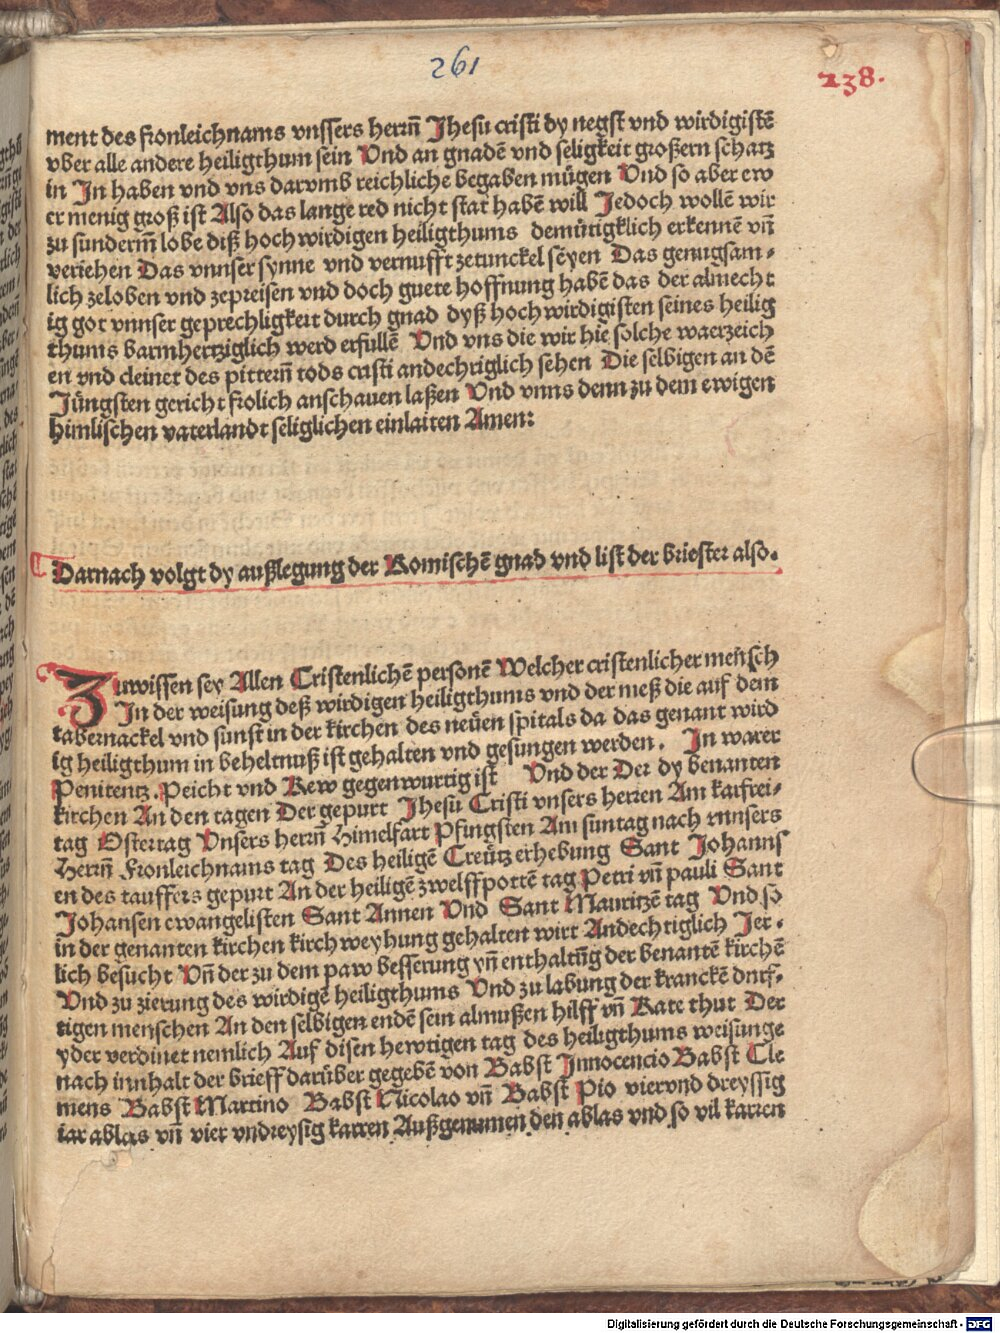 261
238.
ment des fronleichnams vnssers herrn̄ Jhesu cristi dy negst vnd wirdigistē
vber alle andere heiligthum sein Vnd an gnadē vnd seligkeit großern schatz
in In haben vnd vns darvmb reichliche begaben mügen Vnd so aber ew
er menig groß ist Also das lange red nicht stat habē will Jedoch wollē wir
zu sunderm̄ lobe diß hochwirdigen heiligthums demütigklich erkennē vn̄
veriehen Das vnnser synne vnd vernufft zetunckel seyen Das genugsam⸗
lich zeloben vnd zepreisen vnd doch guete hoffnung habē das der almecht
ig got vnnser geprechligkeit durch gnad dyß hochwirdigisten seines heilig
thums barmhertziglich werd erfullē Vnd vns die wir hie solche waerzeich
en vnd cleinet des pittern̄ tods cristi andechtiglich sehen Die selbigen an dē
Jüngsten gericht frolich anschauen laßen Vnd vnns denn zu dem ewigen
himlischen vaterlandt seliglichen einlaiten Amen:
Darnach volgt dy außlegung der Romischē gnad vnd list der briester also.
Zuwissen sey Allen Cristenlichē personē Welcher cristenlicher mensch
In der weisung deß wirdigen heiligthums vnd der meß die auf dem
tabernackel vnd sunst in der kirchen des neüen spitals da das genant wird
ig heiligthum in beheltnuß ist gehalten vnd gesungen werden. In warer
Penitentz. Peicht vnd Rew gegenwurtig ist Vnd der Der dy benanten
kirchen An den tagen Der gepurt Jhesu Cristi vnsers herren Am karfrei⸗
tag Ostertag Vnsers herrn̄ Himelfart Pfingsten Am suntag nach vnnsers
Herrn̄ Fronleichnams tag Des heiligē Creützerhebung Sant Johanns
en des tauffers gepurt An der heiligē zwelffpottē tag Petri vn̄ pauli Sant
Johansen ewangelisten Sant Annen Vnd Sant Mauritzē tag Vnd so
in der genanten kirchen kirchweyhung gehalten wirt Andechtiglich Jer⸗
lich besucht Vn̄ der zu dem paw besserung vn̄ enthaltūg der benantē kirchē
Vnd zu zierung des wirdigē heiligthums Vnd zu labung der kranckē durf⸗
tigen menschen An den selbigen endē sein almußen hilff vn̄ Rate thut Der
yder verdinet nemlich Auf disen hewtigen tag des heiligthums weisunge
nach innhalt der brieff darüber gegebē von Babst Innocencio Babst Cle
mens Babst Martino Babst Nicolao vn̄ Babst Pio viervnd dreyssig
iar ablas vn̄ vier vndreysig karren Außgenumen den ablas vnd so vil karren
Digitalisierung gefördert durch die Deutsche Forschungsgemeinschaft - DFG